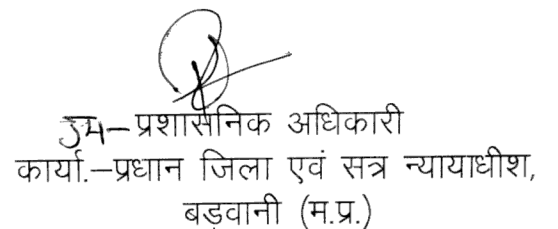 उप–प्रशासनिक अधिकारी
कार्या.–प्रधान जिला एवं सत्र न्यायाधीश,
बड़वानी (म.प्र.)